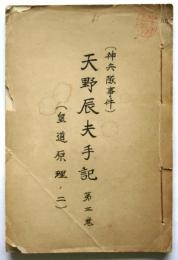 （神兵隊事件）
天野辰夫手記 第二巻
（皇道原理ノ二）